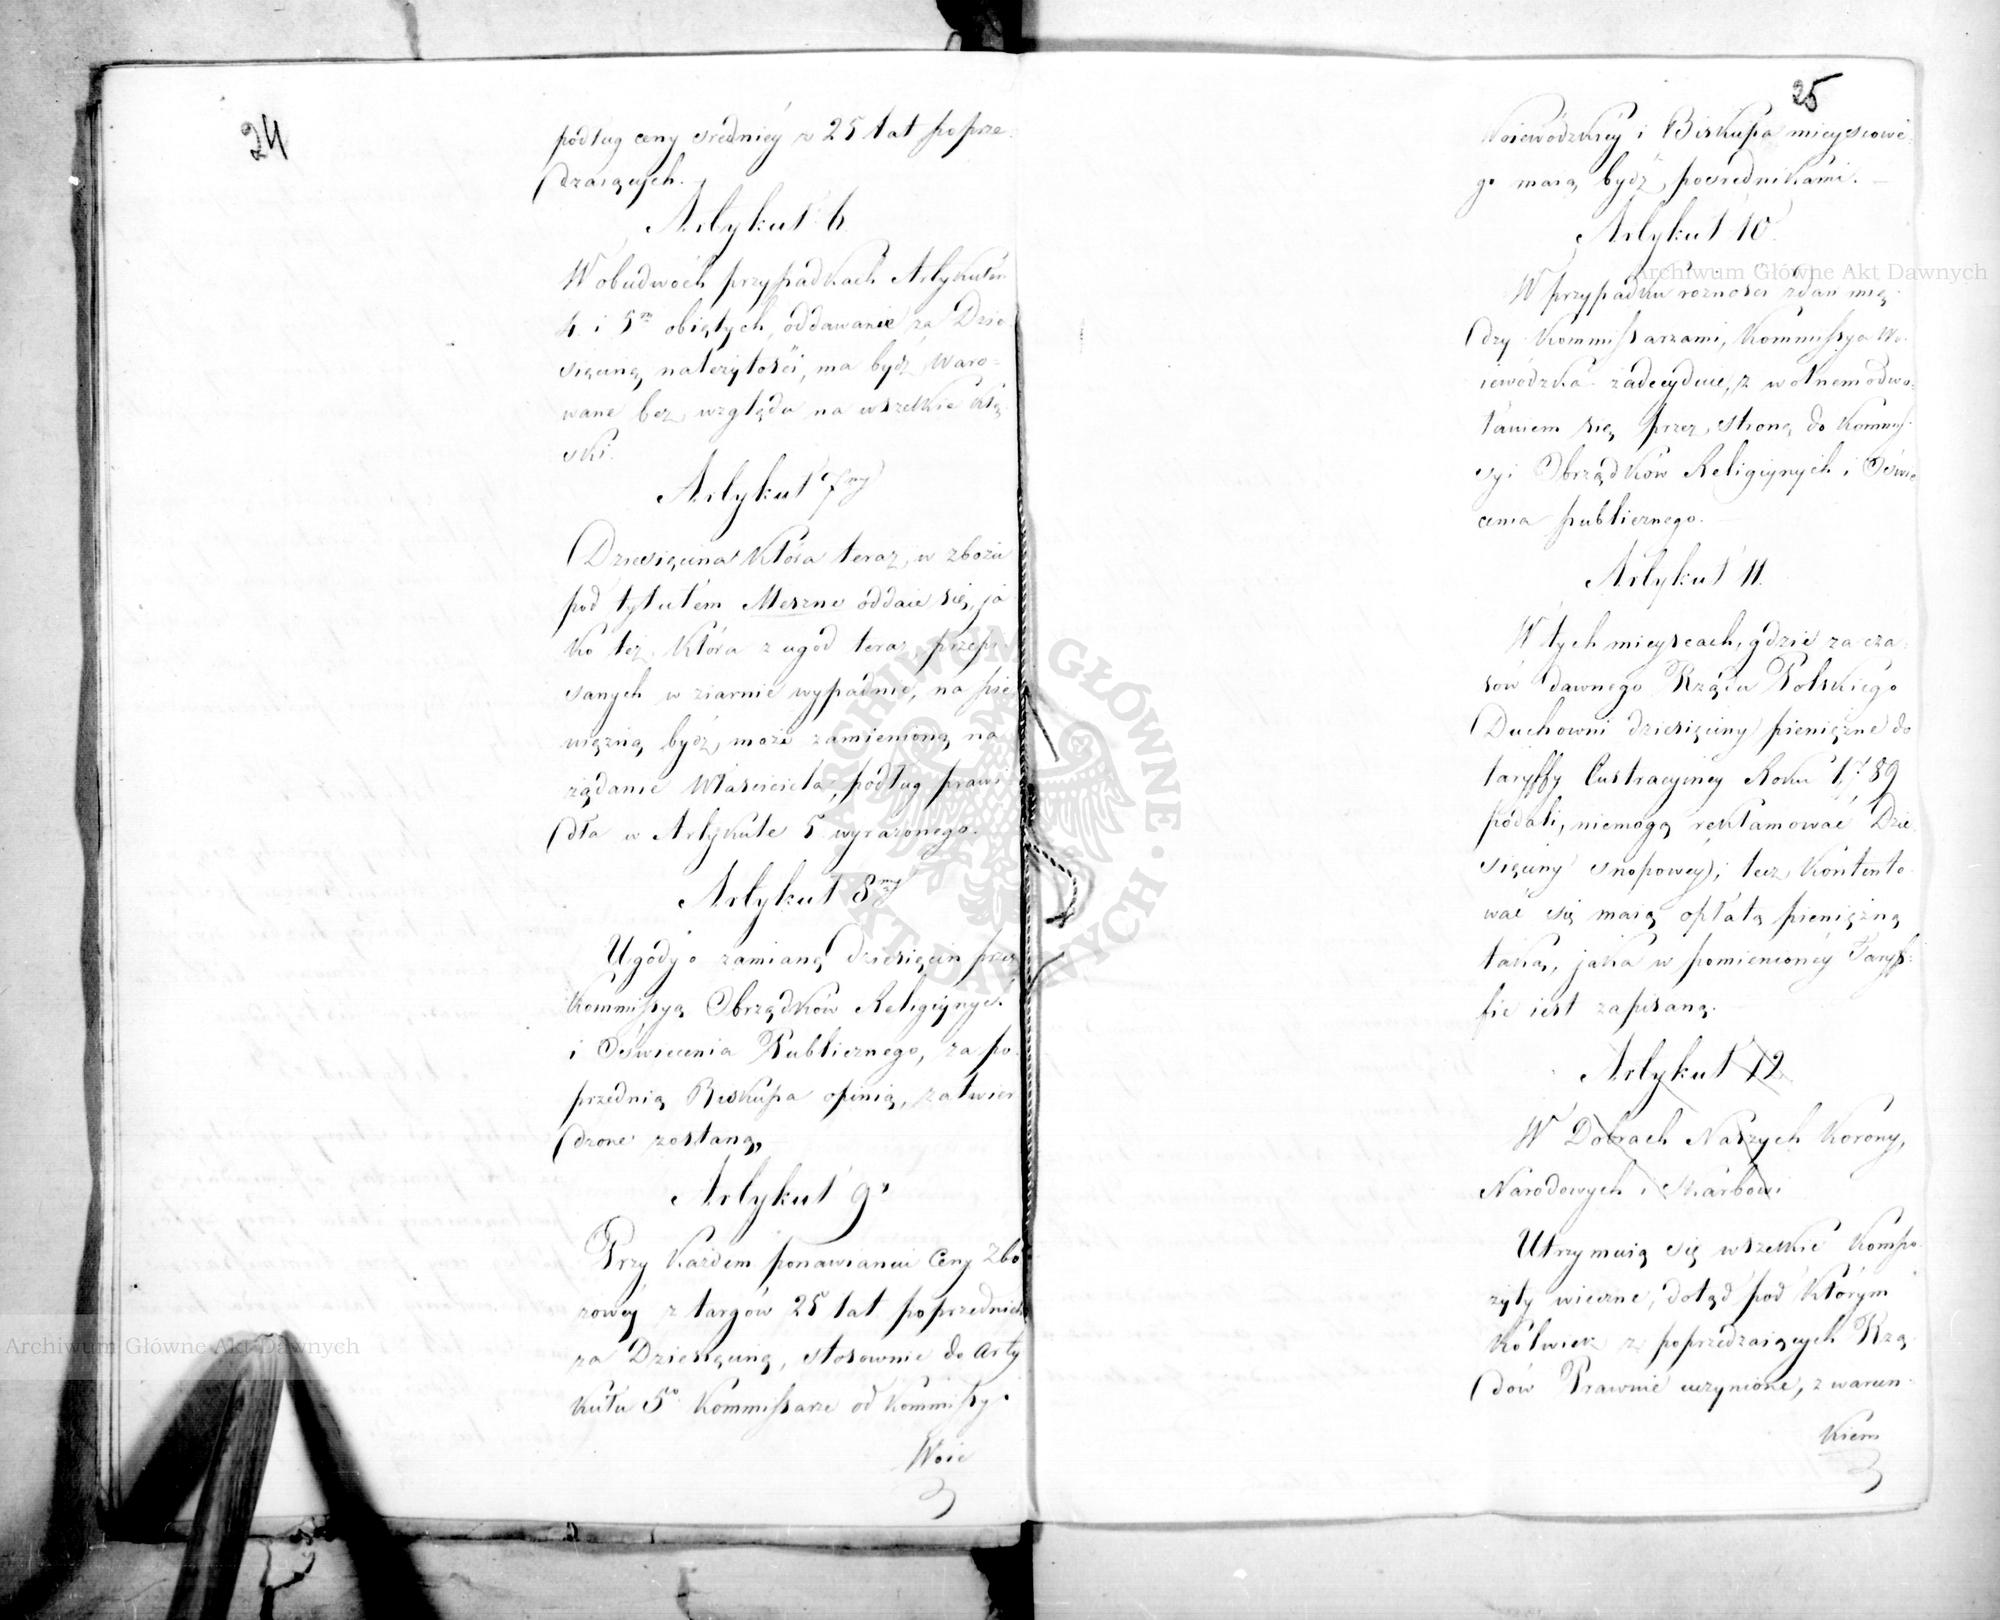 24
podług ceny średniéy z 25 lat poprze-
dzaiących.
Artykuł 6.
W obudwóch przypadkach Artykułem
4. i 5m obiętych, oddawanie za Dzie-
sięcinę należytości, ma bydź waro-
wane bez względu na wszelkie klę-
ski.
Artykuł 7my
Dziesięcina która teraz w zbożu
pod tytułem Meszne oddaie się, ja-
ko też która z ugod teraz przepi-
sanych w ziarnie wypadnie, na pie-
niężną bydź może zamienioną na
żądanie Właściciela, podług prawi-
dła w Artykule 5. wyrażonego.
Artykuł 8my
Ugody o zamianę dziesięcin przez
Kommissyą Obrządków Religiynych
i Oświecenia Publicznego, za po-
przednią Biskupa opinią, zatwier-
dzone zostaną.
Artykuł 9.
Przy każdem ponawianiu Ceny Zbo-
żowéy z targów 25 lat poprzednich
za Dziesięcinę, stosownie do Arty-
kułu 5o Kommissarze od Kommissyi
Woie
25
Woiewódzkiéy i Biskupa mieyscowe-
go maią bydź pośrednikami.
Artykuł 10.
W przypadku rożności zdań mię-
dzy Kommissarzami, Kommissya Wo-
iewódzka zadecyduie, z wolnem odwo-
łaniem się przez stronę do Kommis-
syi Obrządków Religiynych i Oświe-
cenia publicznego.
Artykuł 11.
W tych mieyscach, gdzie za cza-
sów dawnego Rządu Polskiego
Duchowni dziesięciny pieniężne do
taryffy Lustracyiney Roku 1789
podali, niemogą reklamować Dzie-
sięciny snopowéy; lecz kontento-
wać się maią opłatą pieniężną
taką, jaka w pomienionéy Taryf-
fie iest zapisaną.
Artykuł 12.
W Dobrach Naszych Korony,
Narodowych i Skarbowi
Utrzymuią się wszelkie kompo-
zyty wieczne, dotąd pod którym
kolwiek z poprzedzaiących Rzą-
dów Prawnie uczynione, z warun-
kiem
Archiwum Główne Akt Dawnych
Archiwum Główne Akt Dawnych
ARCHIWUM GŁÓWNE AKT DAWNYCH